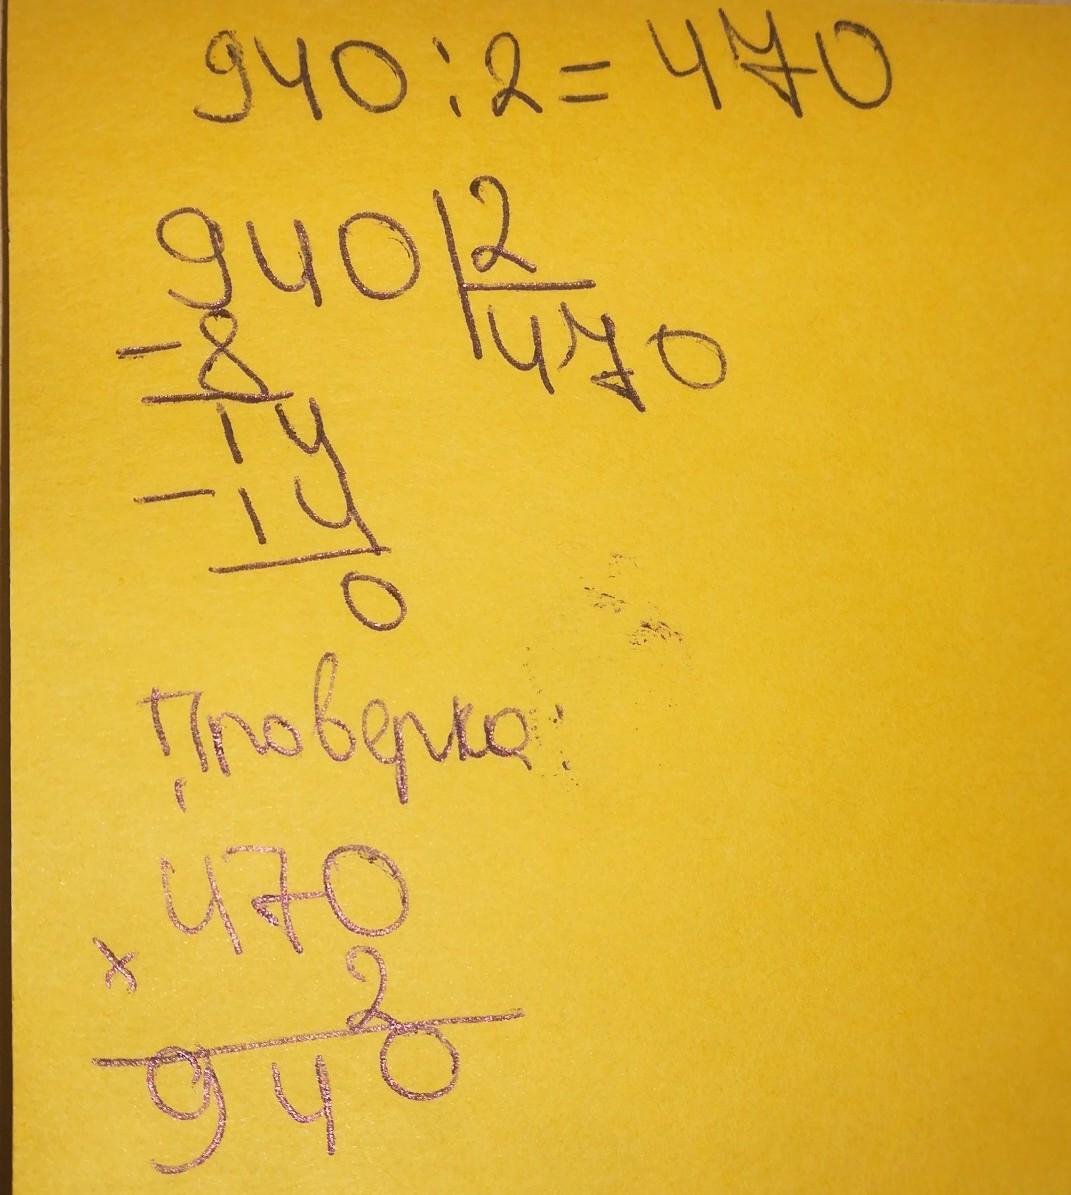 940:2=470
940|2
-8 470
14
-14
0
Проверка:
470
x 2
940